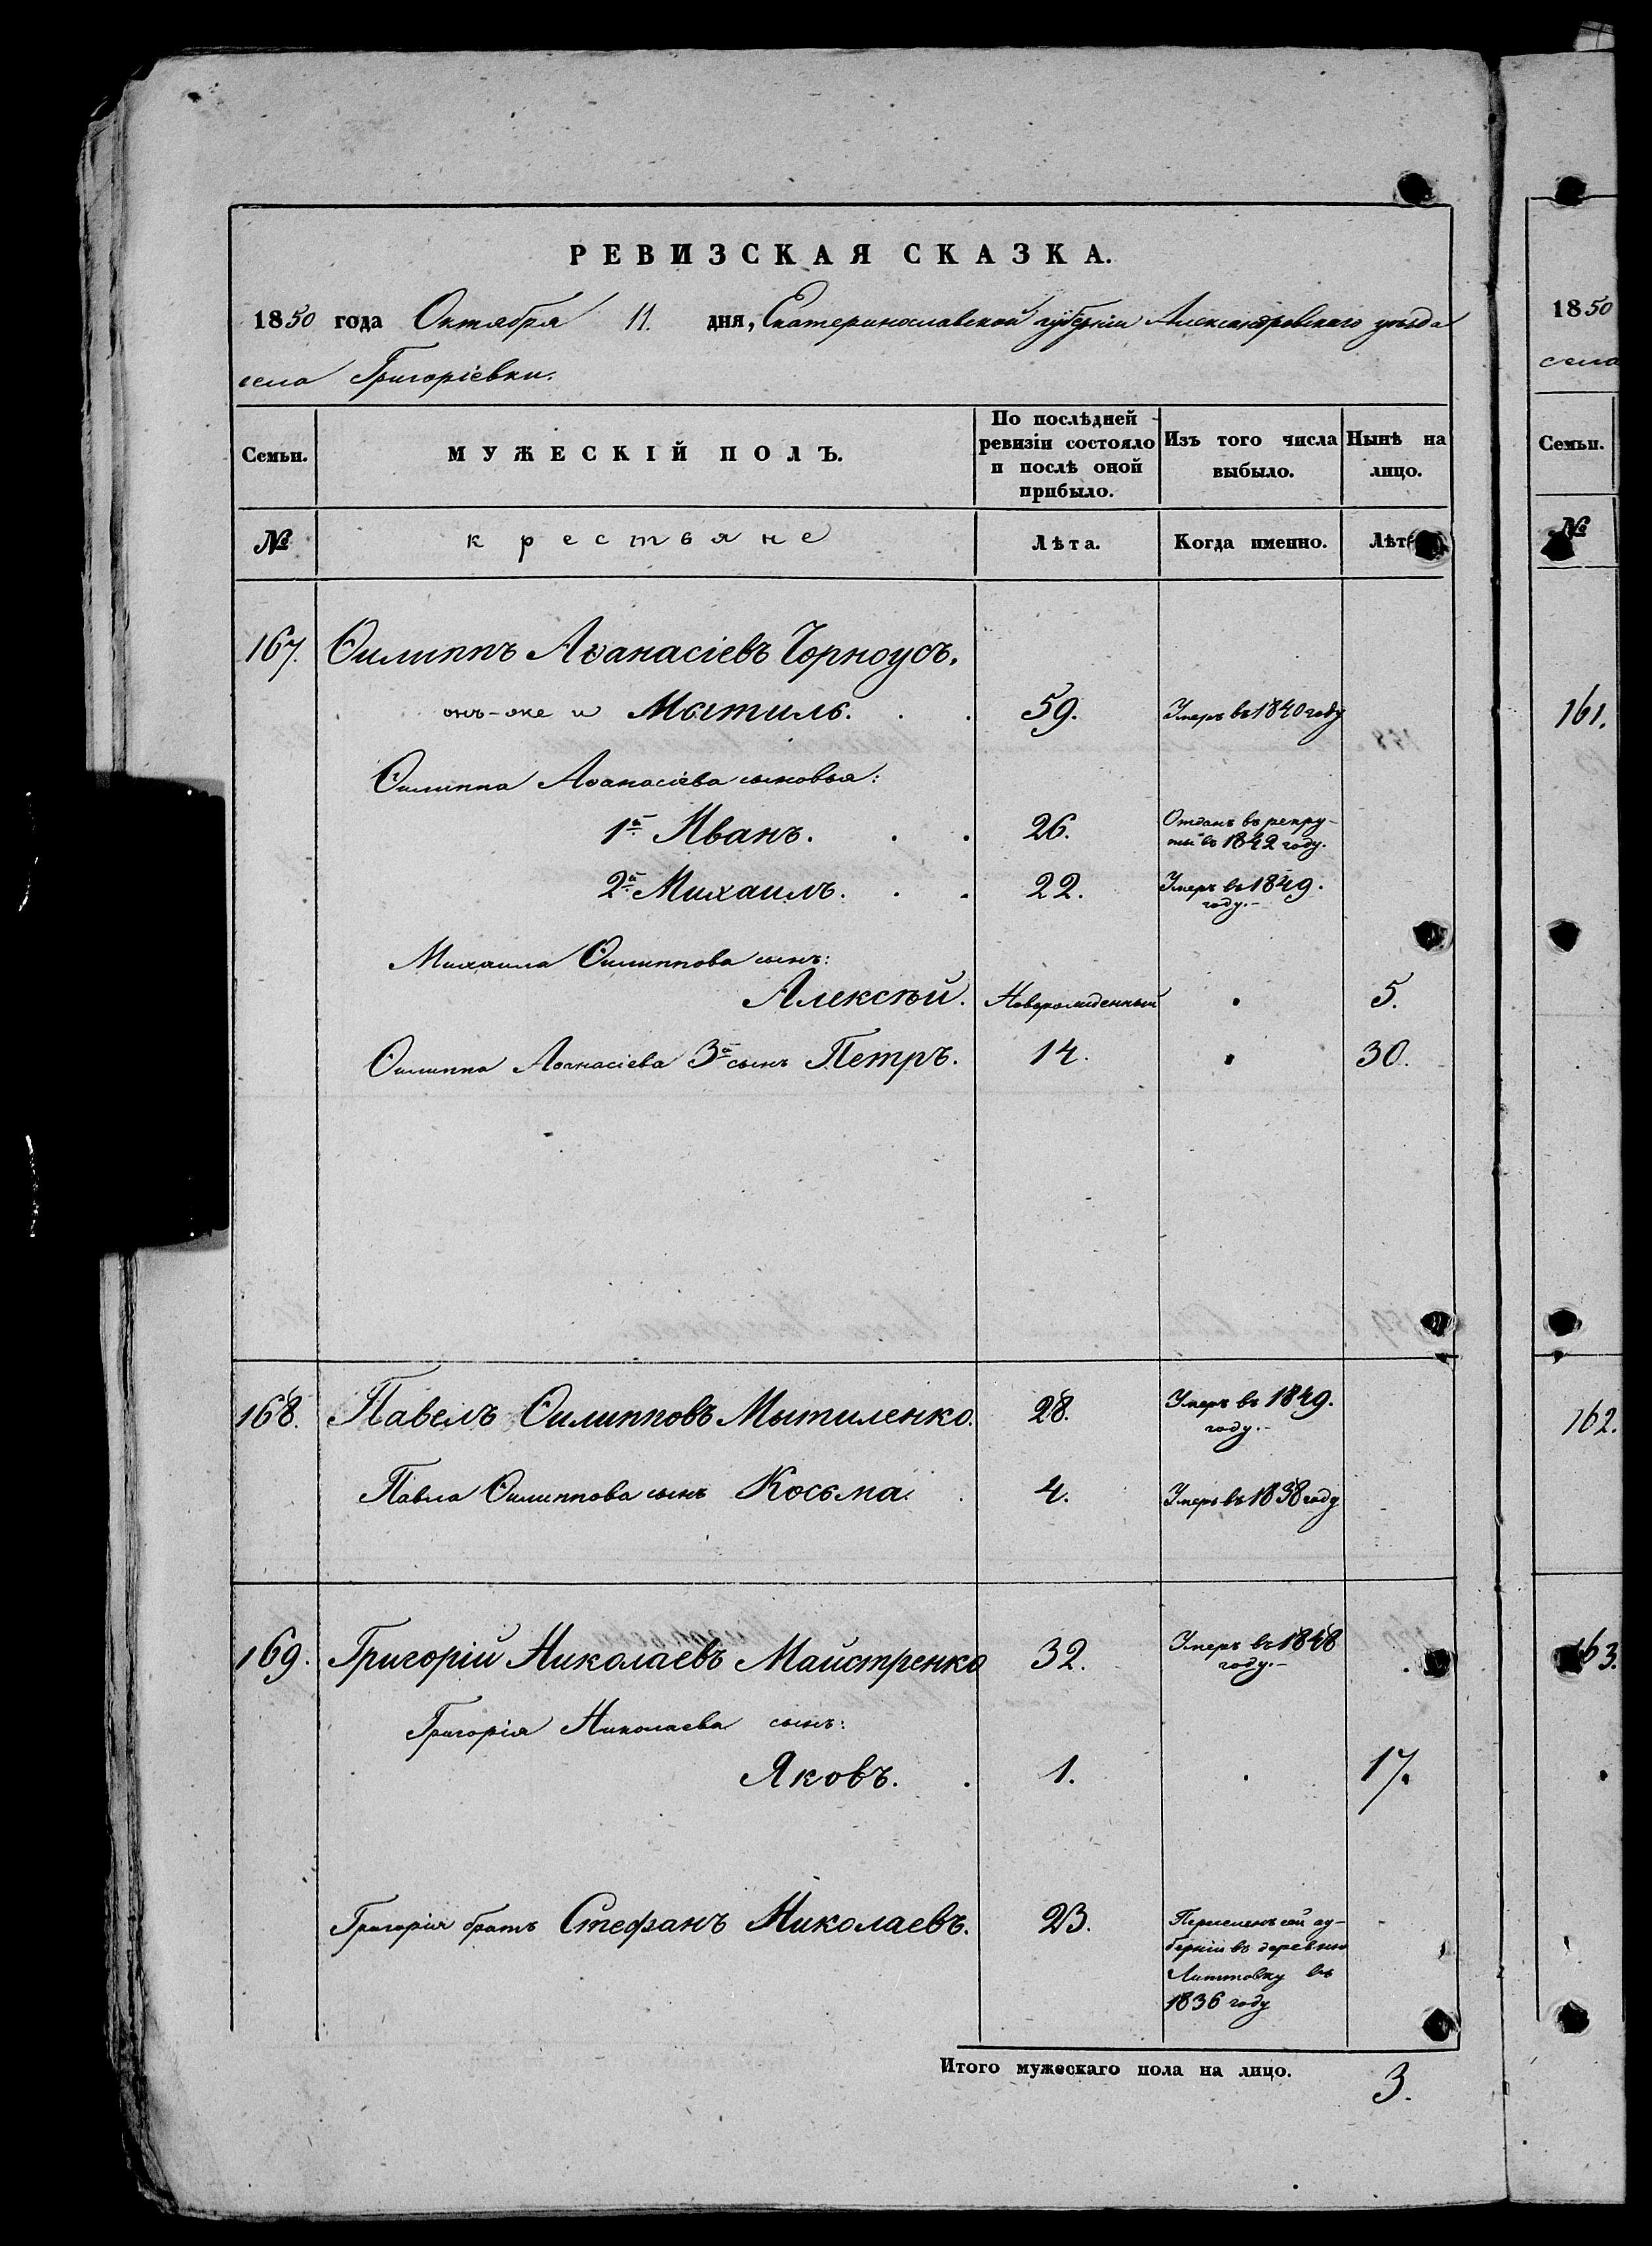 РЕВИЗСКАЯ СКАЗКА.
1850 года Октября 11. дня, Екатеринославской губерніи Александровскаго уѣзда
села Григоріевки.
Семьи. МУЖЕСКІЙ ПОЛЪ. По послѣдней ревизіи состояло и послѣ оной прибыло. Изъ того числа выбыло. Нынѣ на лицо.
№ крестьяне Лѣта. Когда именно. Лѣт
167. Ѳилиппъ Аѳанасіевъ Чорноусъ,
онъ-же и Мытиль. 59. Умеръ въ 1840 году
Ѳилиппа Аѳанасіева сыновья:
1й Иванъ. 26. Отданъ въ рекру-
ты въ 1842 году.
2й Михаилъ. 22. Умеръ въ 1849.
году.-
Михаила Ѳилиппова сынъ:
Алексѣй. Новорожденный 5.
Ѳилиппа Аѳанасіева 3й сынъ Петръ. 14. 30.
168. Павелъ Ѳилипповъ Мытиленко. 28. Умеръ въ 1849.
году.-
Павла Ѳилиппова сынъ Косьма. 4. Умеръ въ 1838 году
169. Григорій Николаевъ Майстренко 32. Умеръ въ 1848
году.-
Григорія Николаева сынъ:
Яковъ. 1. 17.
Григорія братъ Стефанъ Николаевъ. 23. Переселенъ сей гу-
берніи въ деревню
въ
1836 году
Итого мужескаго пола на лицо. 3.
1850
села
Семьи.
№
161.
162.
163.